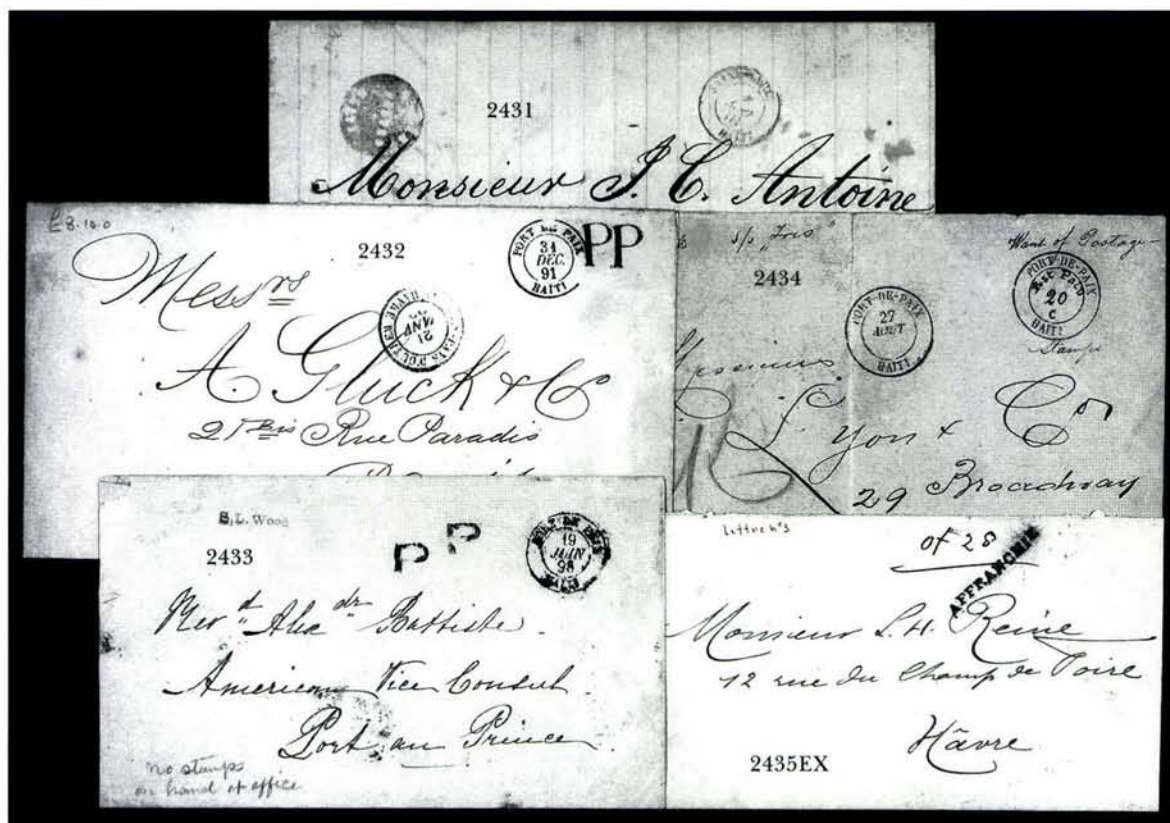 2431
HAITI
Monsieur J. C. Antoine
£8.10.0
2432
PORT DE PAIX
31
DEC.
91
HAITI
PP
Messrs
21
JANV
A. Gluck & Co
21 Bis Rue Paradis
S/S "
2434
PORT-DE-PAIX
27
AOUT
HAITI
Want of Postage-
PORT-DE-PAIX
Est Payé
20
c
HAITI
Stamps
Messieurs
Lyon & Co
29 Broadway
S.L. Wood
2433
PP
PORT DE PAIX
19
JUIN
98
HAITI
Revd Alexdr Battiste.
American Vice Consul.
Port au Prince.
no stamps
on hand at office
Lettre no 3
of 28
AFFRANCHIE
Monsieur L. H. Reine
12 rue du Champ de Foire
Hâvre
2435EX